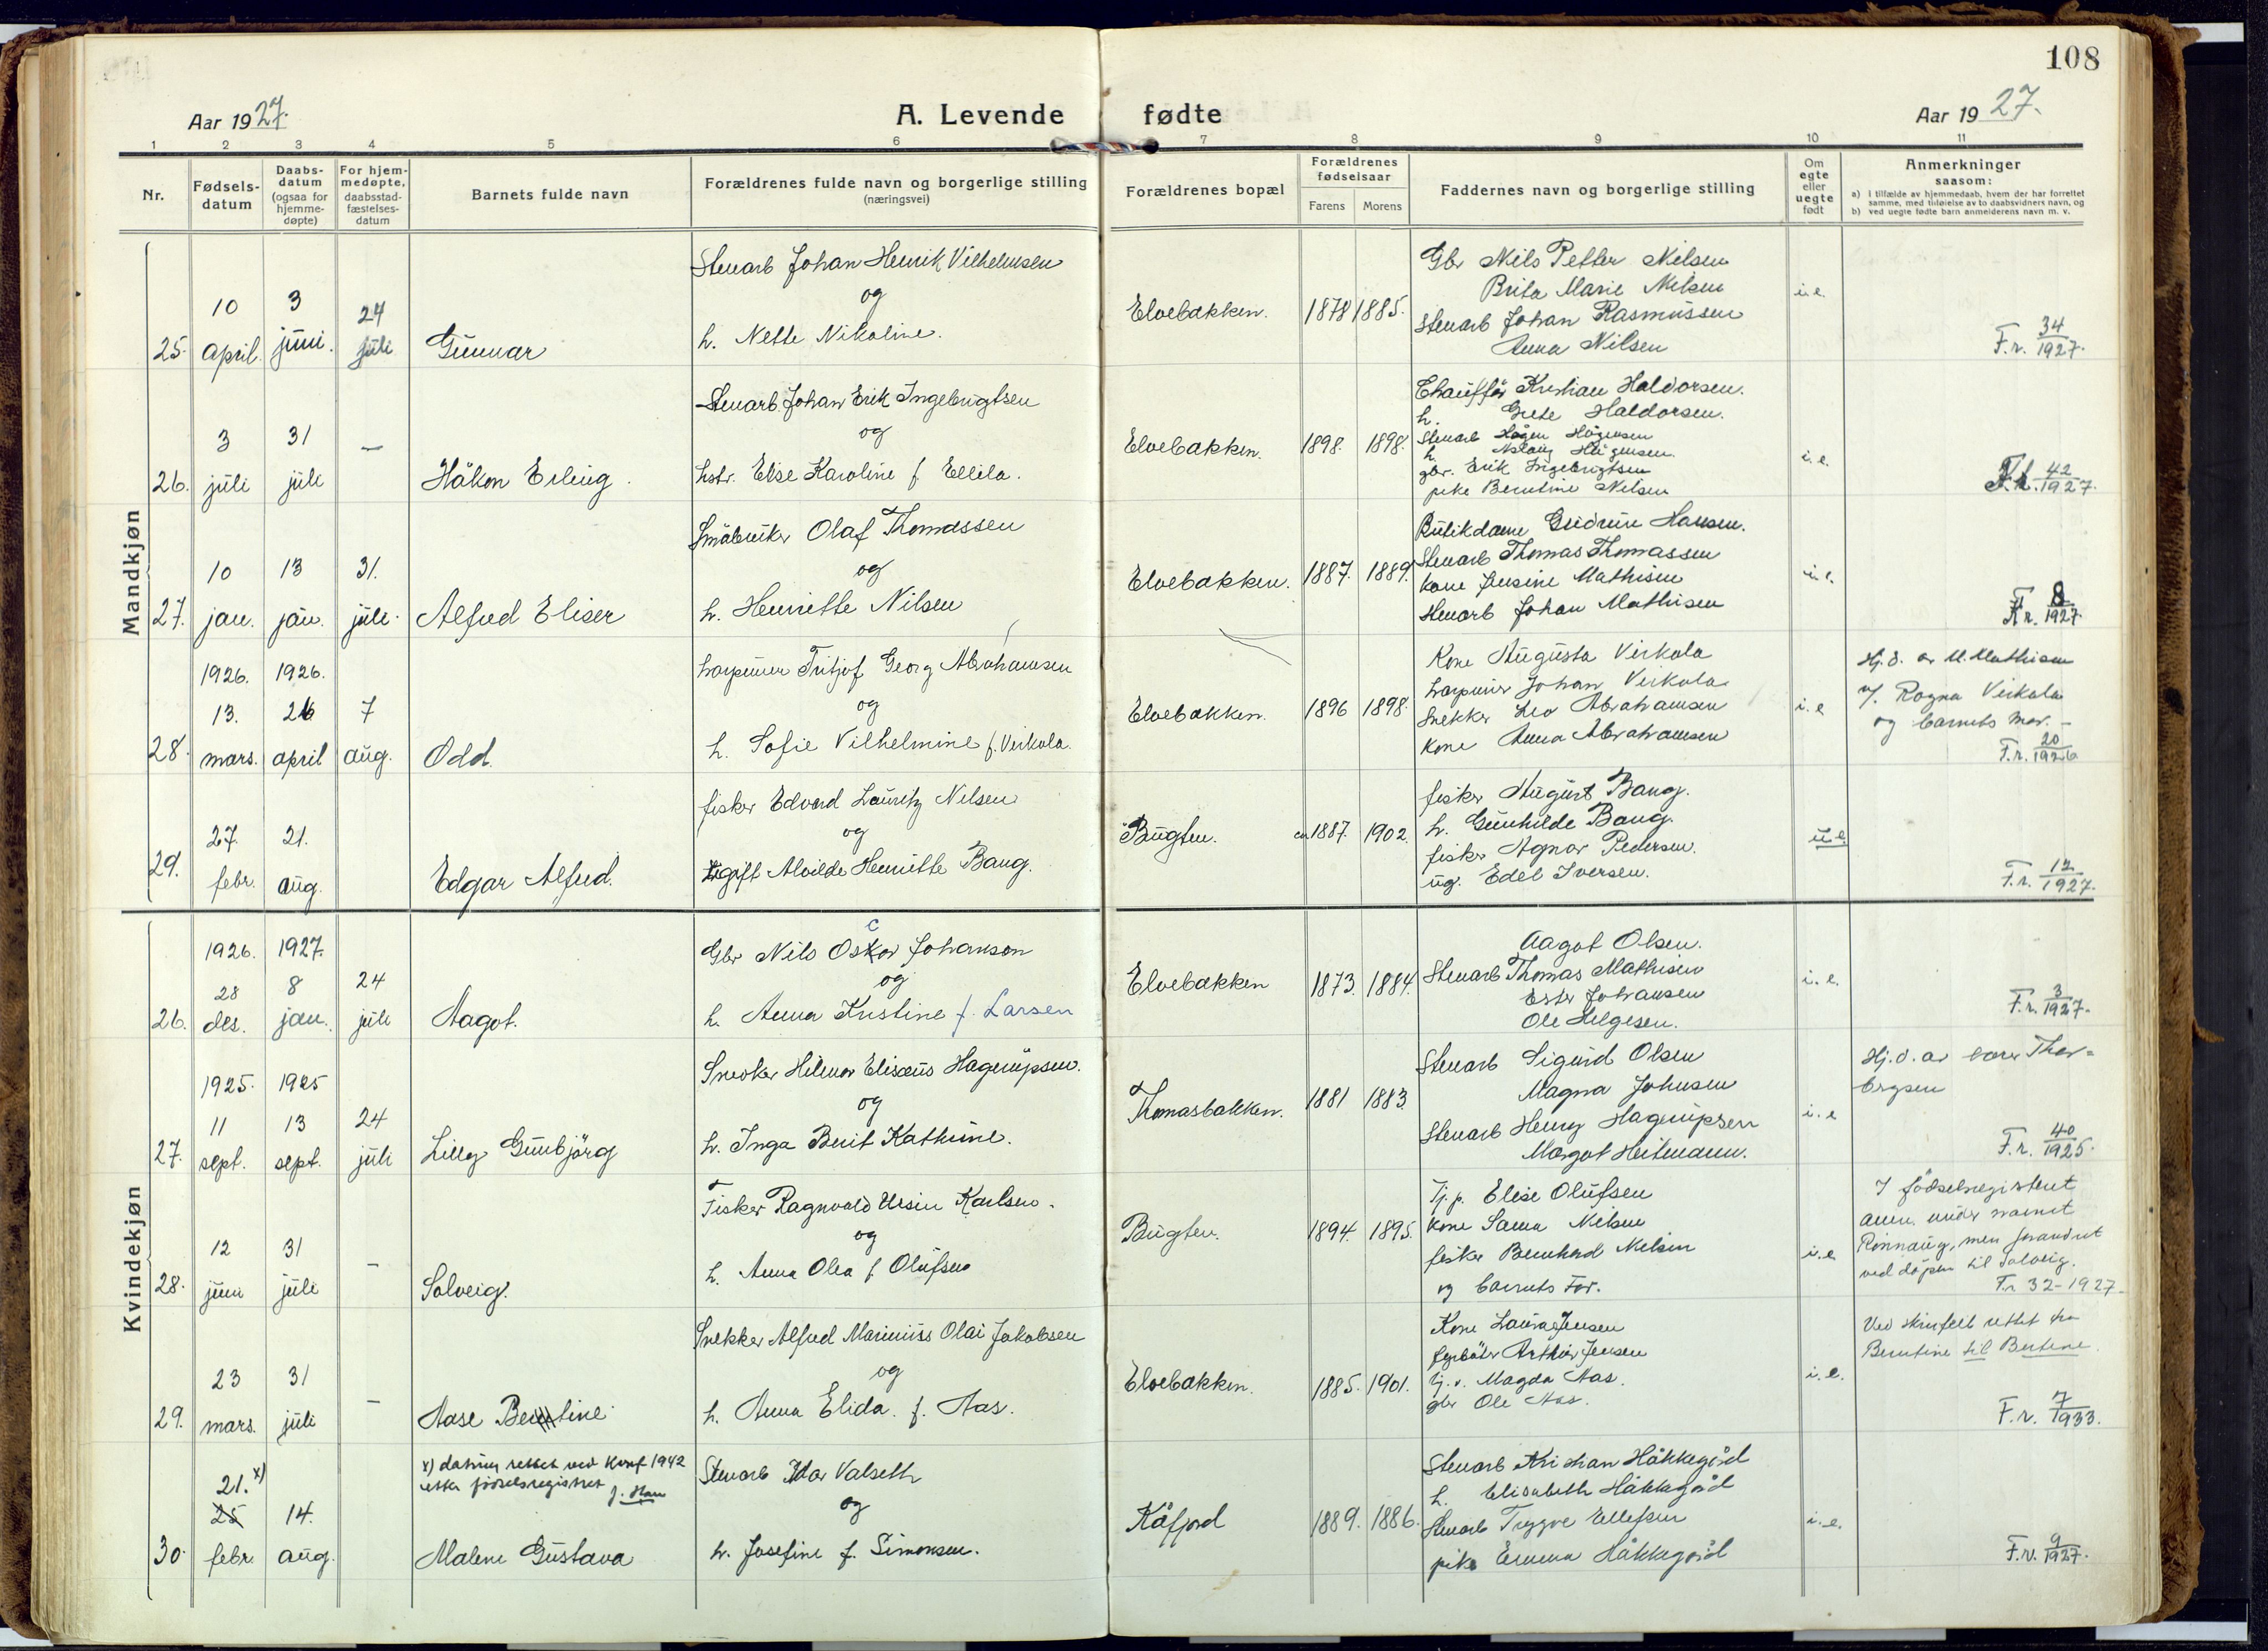 108
Aar 1927.
A. Levende fødte
Aar 1927.
1 2 3 4 5 6 7 8 9 10 11
Nr.
Fødsels-
datum
Daabs-
datum
(ogsaa for
hjemme-
døpte)
For hjem-
medøpte,
daabsstad-
fæstelses-
datum
Barnets fulde navn
Forældrenes fulde navn og borgerlige stilling
(næringsvei)
Forældrenes bopæl
Forældrenes
fødselsaar
Farens Morens
Faddernes navn og borgerlige stilling
Om
egte
eller
uegte
født
Anmerkninger
saasom:
a) i tilfælde av hjemmedaab, hvem der har forrettet
samme, med tilføielse av to daabsvidners navn, og
b) ved uegte fødte barn anmelderens navn m. v.
Mandkjøn
25. 10 april. 3 juni. 24 juli Gunnar
Stenarb Johan Henrik Vilhelmsen
og
h. Nette Nikoline.
Elvebakken. 1878 1885.
Gbr Nils Petter Nilsen
Brita Marie Nilsen
Stenarb Johan Rasmussen
Anna Nilsen
i.e.
F.r. 34/1927.
26. 3 juli 31 juli — Håkon Erling.
Stenarb. Johan Erik Ingebrigtsen
og
hstr. Elise Karoline f. Ellila.
Elvebakken. 1898. 1898.
Chauffør Kristian Haldorsen.
h. Grete Haldorsen.
Stenarb Hågen Hågensen
h. Aslaug Hågensen.
gbr. Erik Ingebrigtsen
pike Berntine Nilsen
i.e.
F.r. 42/1927.
27. 10 jan. 13 jan. 31. juli. Alfred Eliser
Småbruker Olaf Thomassen
og
h. Henriette Nilsen
Elvebakken. 1887. 1889.
Butikdame Gudrun Hansen.
Stenarb Thomas Thomassen
kone Jensine Mathisen
Stenarb Johan Mathisen
i.e.
F.r. 8/1927.
28. 1926. 13. mars. 1926. 26 april 7 aug. Odd.
Fritjof Georg Abrahamsen
og
h. Sofie Vilhelmine f. Virkola.
Elvebakken. 1896 1898.
Kone Augusta Virkola
Johan Virkola
Snekker Leo Abrahamsen
Kone Anna Abrahamsen
i.e
Hj.d. av M. Mathisen
v/. Ragna Virkola
og barnets mor. –
F.r. 20/1926
29. 27. febr. 21. aug. Edgar Alfred.
fisker Edvard Lauritz Nilsen
og
ugift Alvilde Henriette Bang.
Bugten. ca 1887. 1902.
fisker August Bang.
h. Gunhilde Bang.
fisker Agnar Pedersen.
ug. Edel Iversen.
u.e.
F.r. 12/1927.
Kvindekjøn
26. 1926. 28 des. 1927. 8 jan. 24 juli Aagot.
Gbr Nils Oscar Johansen
og
h. Anna Kristine f. Larsen
Elvebakken 1873. 1884.
Aagot Olsen.
Stenarb Thomas Mathisen
Ester Johansen
Ole Helgesen.
i.e.
F.r. 3/1927.
27. 1925. 11 sept. 1925 13 sept. 24 juli Lilly Gunbjörg
Snedker Hilmar Elisæus Hagerupsen.
og
h. Inga Berit Kathrine.
Thomasbakken. 1881 1883.
Stenarb Sigurd Olsen
Magna Johnsen
Stenarb Henry Hagerupsen
Margot Heitmann.
i.e
Hj.d. av lærer Thor=
brgsen
F.r. 40/1925.
28. 12 juni 31 juli – Solveig.
Fisker Ragnvald Ursin Karlsen.
og
h. Anna Olea f Olufsen
Bugten. 1894. 1895.
Tj.p. Elise Olufsen
Kone Sanna Nilsen
fisker Bernhard Nilsen
og barnets Far.
i.e
I fødselsregisteret
anm. under navnet
Rønnaug, men forandret
ved dåpen til Solveig.
Fr 32-1927.
29. 23 mars. 31 juli – Aase Berntine.
Snekker Alfred Marinius Olai Jakobsen
og
h. Anna Elida. f. Aas.
Elvebakken. 1885. 1901.
Kone Laura Jensen
fyrbøter Arthur Jensen
Tj.p. Magda Aas.
gbr Ole Aas.
i.e.
Ved skrivfeil rettet fra
Berntine til Bertine.
F.r. 7/1933.
x) datum rettet ved konf 1942
etter fødselsregistret
30. 21. x) 25 febr. 14. aug. Malene Gustava
Stenarb Idar Valseth
og
h. Josefine f. Simonsen.
Kåfjord 1889. 1886.
Stenarb Kristian Håkkegård
h. Elisabeth Håkkegård
Stenarb Trygve Ellefsen
pike Emma Håkkegård
i.e.
F.r. 9/1927.